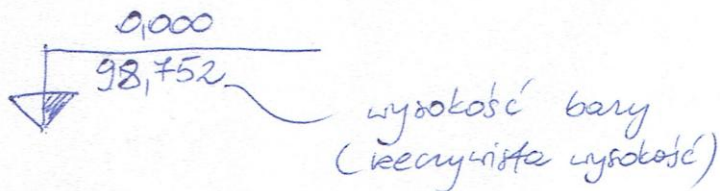 0,000
98,752
wysokość bazy
(rzeczywista wysokość)